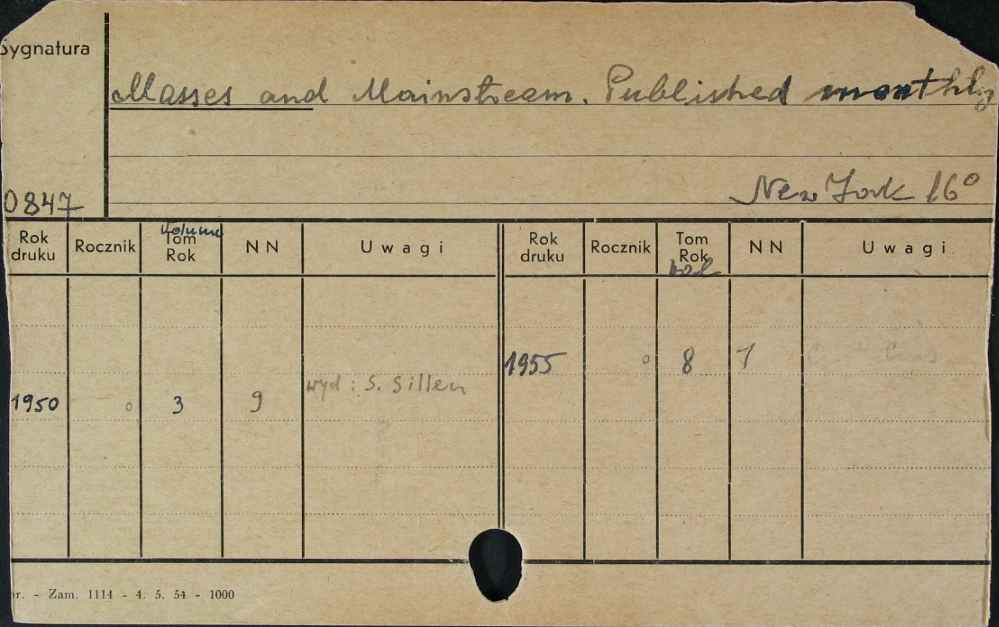 Sygnatura
Masses and Mainstream. Published monthly
0847
New York 16°
Rok druku Rocznik Volume Tom Rok NN Uwagi Rok druku Rocznik Tom Rok vol NN Uwagi
1955 o 8 7
1950 o 3 9 wyd: S. Sillen
r. - Zam. 1114 - 4. 5. 54 - 1000